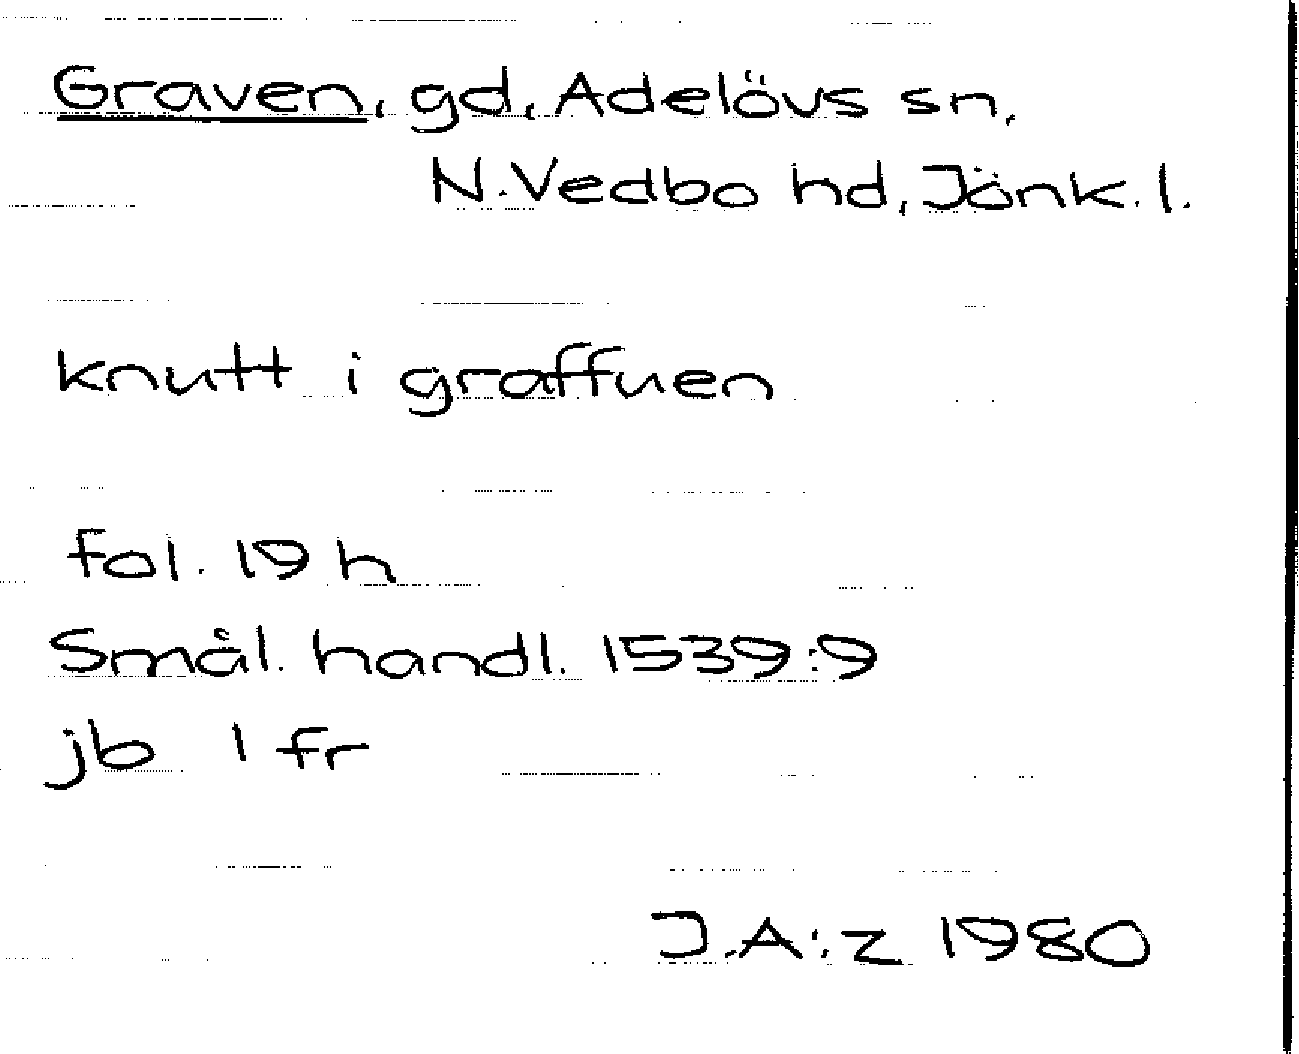 Graven, gd, Adelövs sn,
N. Vedbo hd, Jönk. l.
knutt i graffuen
fol. 19 h
Smål. handl. 1539:9
jb 1 fr
J.A:z 1980